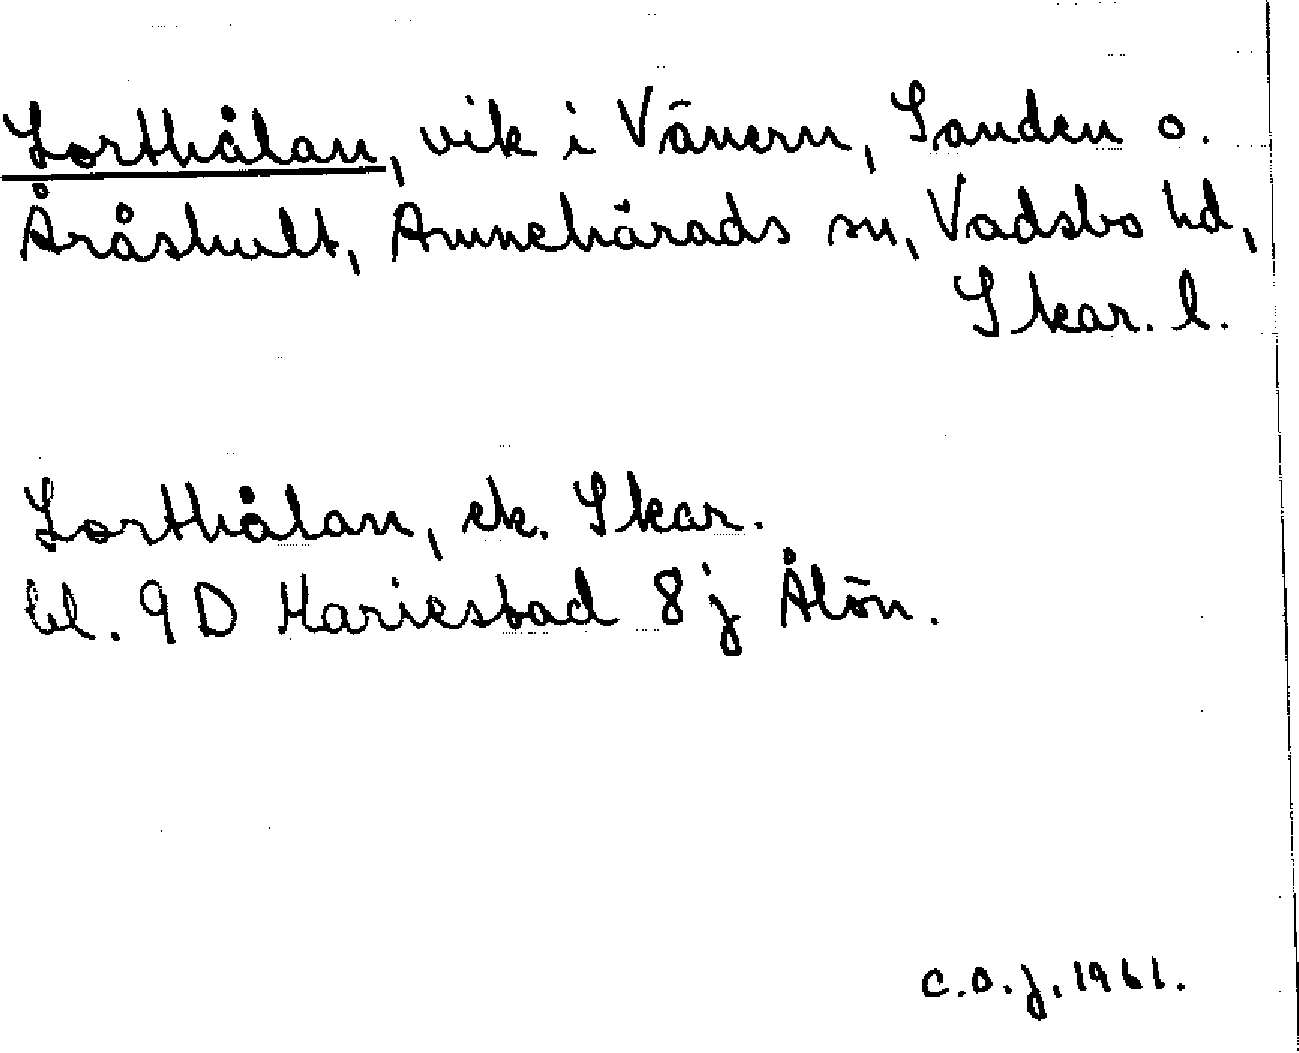 Lorthålan, vik i Vänern, Sanden o.
Åråshult, Amnehärads sn, Vadsbo hd,
Skar. l.
Lorthålan, ek. Skar.
bl. 9D Mariestad 8j Ålön.
C.O.J. 1961.